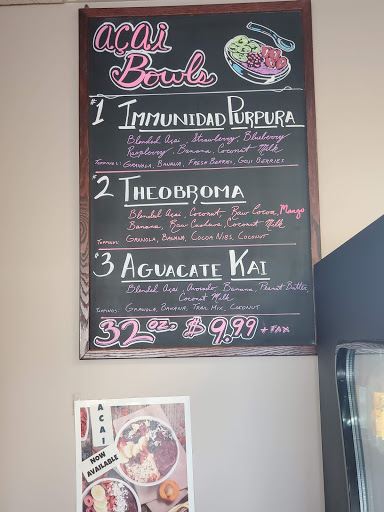 açai
Bowls
#1 Immunidad Purpura
Blended Açai, Strawberry, Blueberry
Raspberry, Banana, Coconut Milk
Toppings: Granola, Banana, Fresh Berries, Goji Berries
#2 Theobroma
Blended Açai, Coconut, Raw Cocoa, Mango
Banana, Raw Cashews, Coconut Milk
Toppings: Granola, Banana, Cocoa Nibs, Coconut
#3 Aguacate Kai
Blended Açai, Avocado, Banana, Peanut Butter,
Coconut Milk
Toppings: Granola, Banana, Trail Mix, Coconut
32 oz. $9.99 + tax
AÇAI
NOW
AVAILABLE